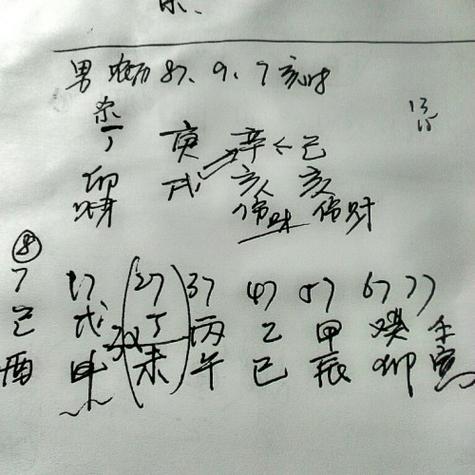 男 农历 87.9.7 亥时
杀
丁 庚 辛 ← 己
卯 戌 亥 亥
伤财 伤财
⑧
7 17 27 37 47 57 67 77
己 戊 丁 丙 乙 甲 癸 壬
酉 申 未 午 巳 辰 卯 寅